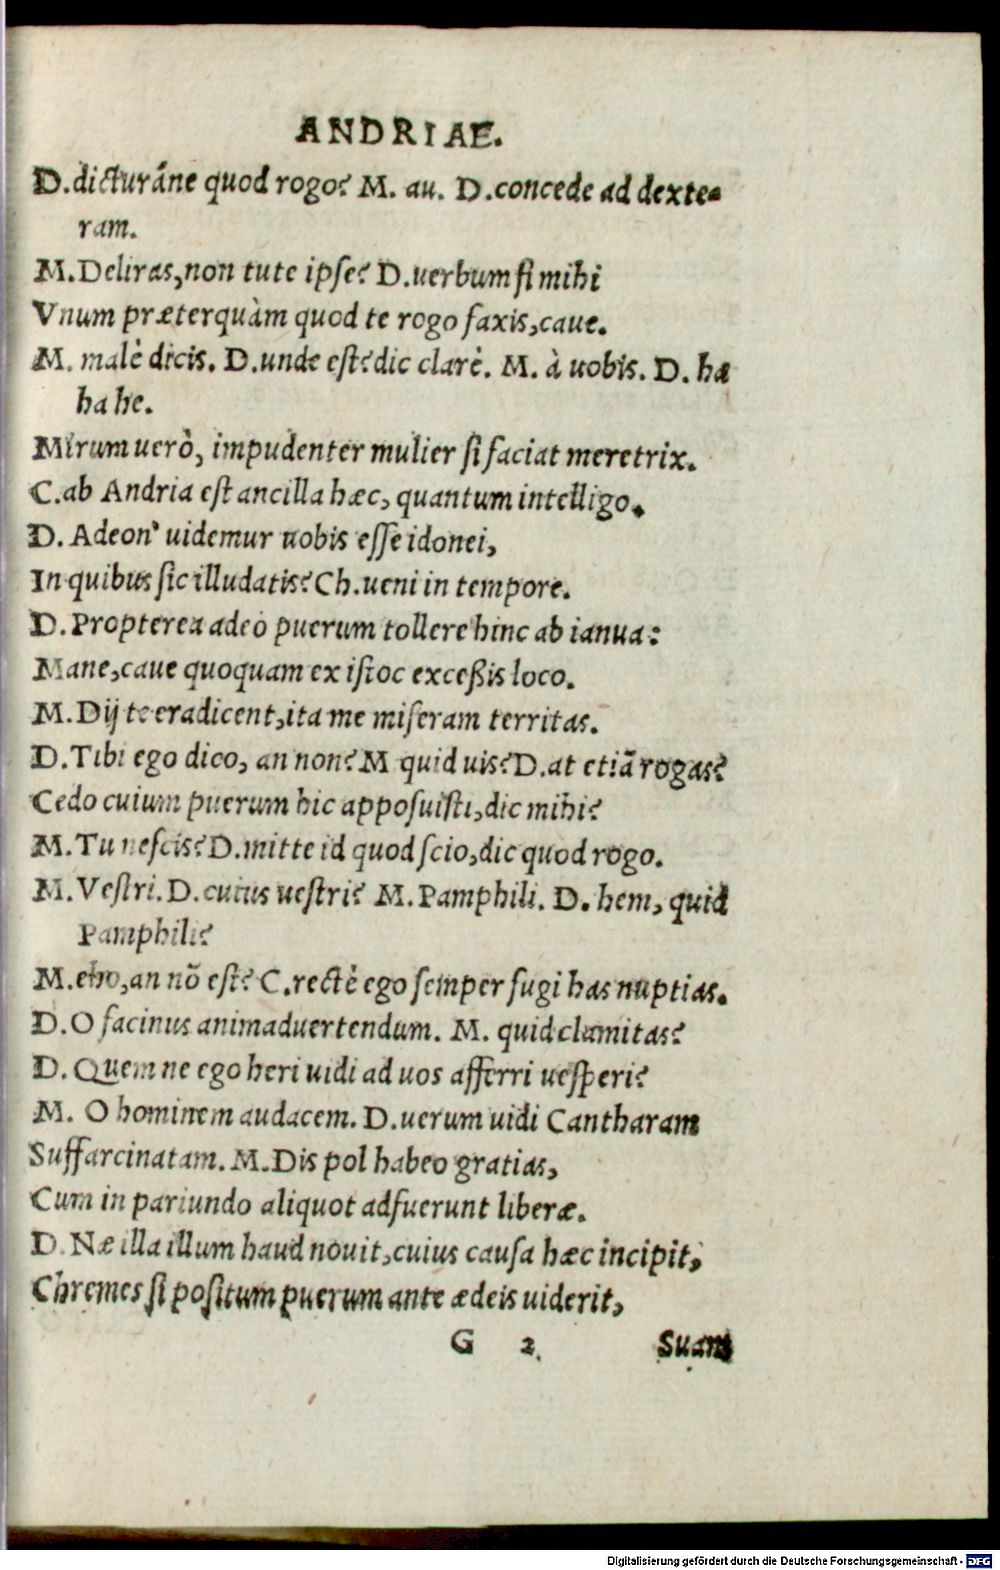 ANDRIAE.
D.dicturáne quod rogo? M. au. D.concede ad dexte-
ram.
M.Deliras,non tute ipse? D.uerbum si mihi
Vnum præterquàm quod te rogo faxis,caue.
M. malè dicis. D.unde est?dic clarè. M. à uobis. D. ha
ha he.
Mirum uerò, impudenter mulier si faciat meretrix.
C.ab Andria est ancilla hæc, quantum intelligo.
D. Adeon' uidemur uobis esse idonei,
In quibus sic illudatis? Ch.ueni in tempore.
D.Propterea adeo puerum tollere hinc ab ianua:
Mane,caue quoquam ex istoc exceßis loco.
M.Dij te eradicent,ita me miseram territas.
D.Tibi ego dico, an non? M quid uis?D.at etiã rogas?
Cedo cuium puerum hic apposuisti,dic mihi?
M.Tu nescis?D.mitte id quod scio,dic quod rogo.
M.Vestri.D.cuius uestri? M.Pamphili. D. hem, quid
Pamphili?
M.eho,an nõ est? C.rectè ego semper fugi has nuptias.
D.O facinus animaduertendum. M. quid clamitas?
D.Quem ne ego heri uidi ad uos afferri uesperi?
M. O hominem audacem. D.uerum uidi Cantharam
Suffarcinatam.M.Dis pol habeo gratias,
Cum in pariundo aliquot adfuerunt liberæ.
D.Næ illa illum haud nouit,cuius causa hæc incipit,
Chremes si positum puerum ante ædeis uiderit,
G 2 Suam
Digitalisierung gefördert durch die Deutsche Forschungsgemeinschaft - DFG